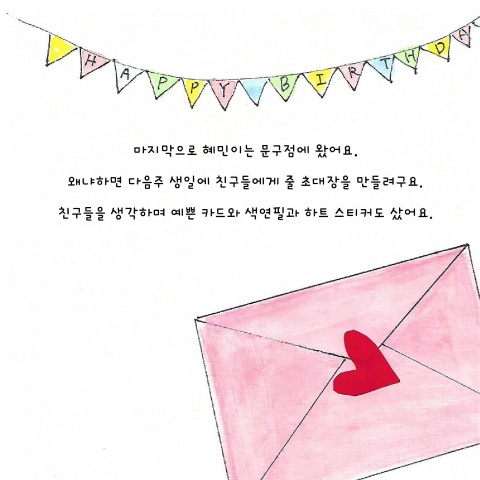 HAPPY BIRTHDA
마지막으로 혜민이는 문구점에 왔어요.
왜냐하면 다음주 생일에 친구들에게 줄 초대장을 만들려구요.
친구들을 생각하며 예쁜 카드와 색연필과 하트 스티커도 샀어요.